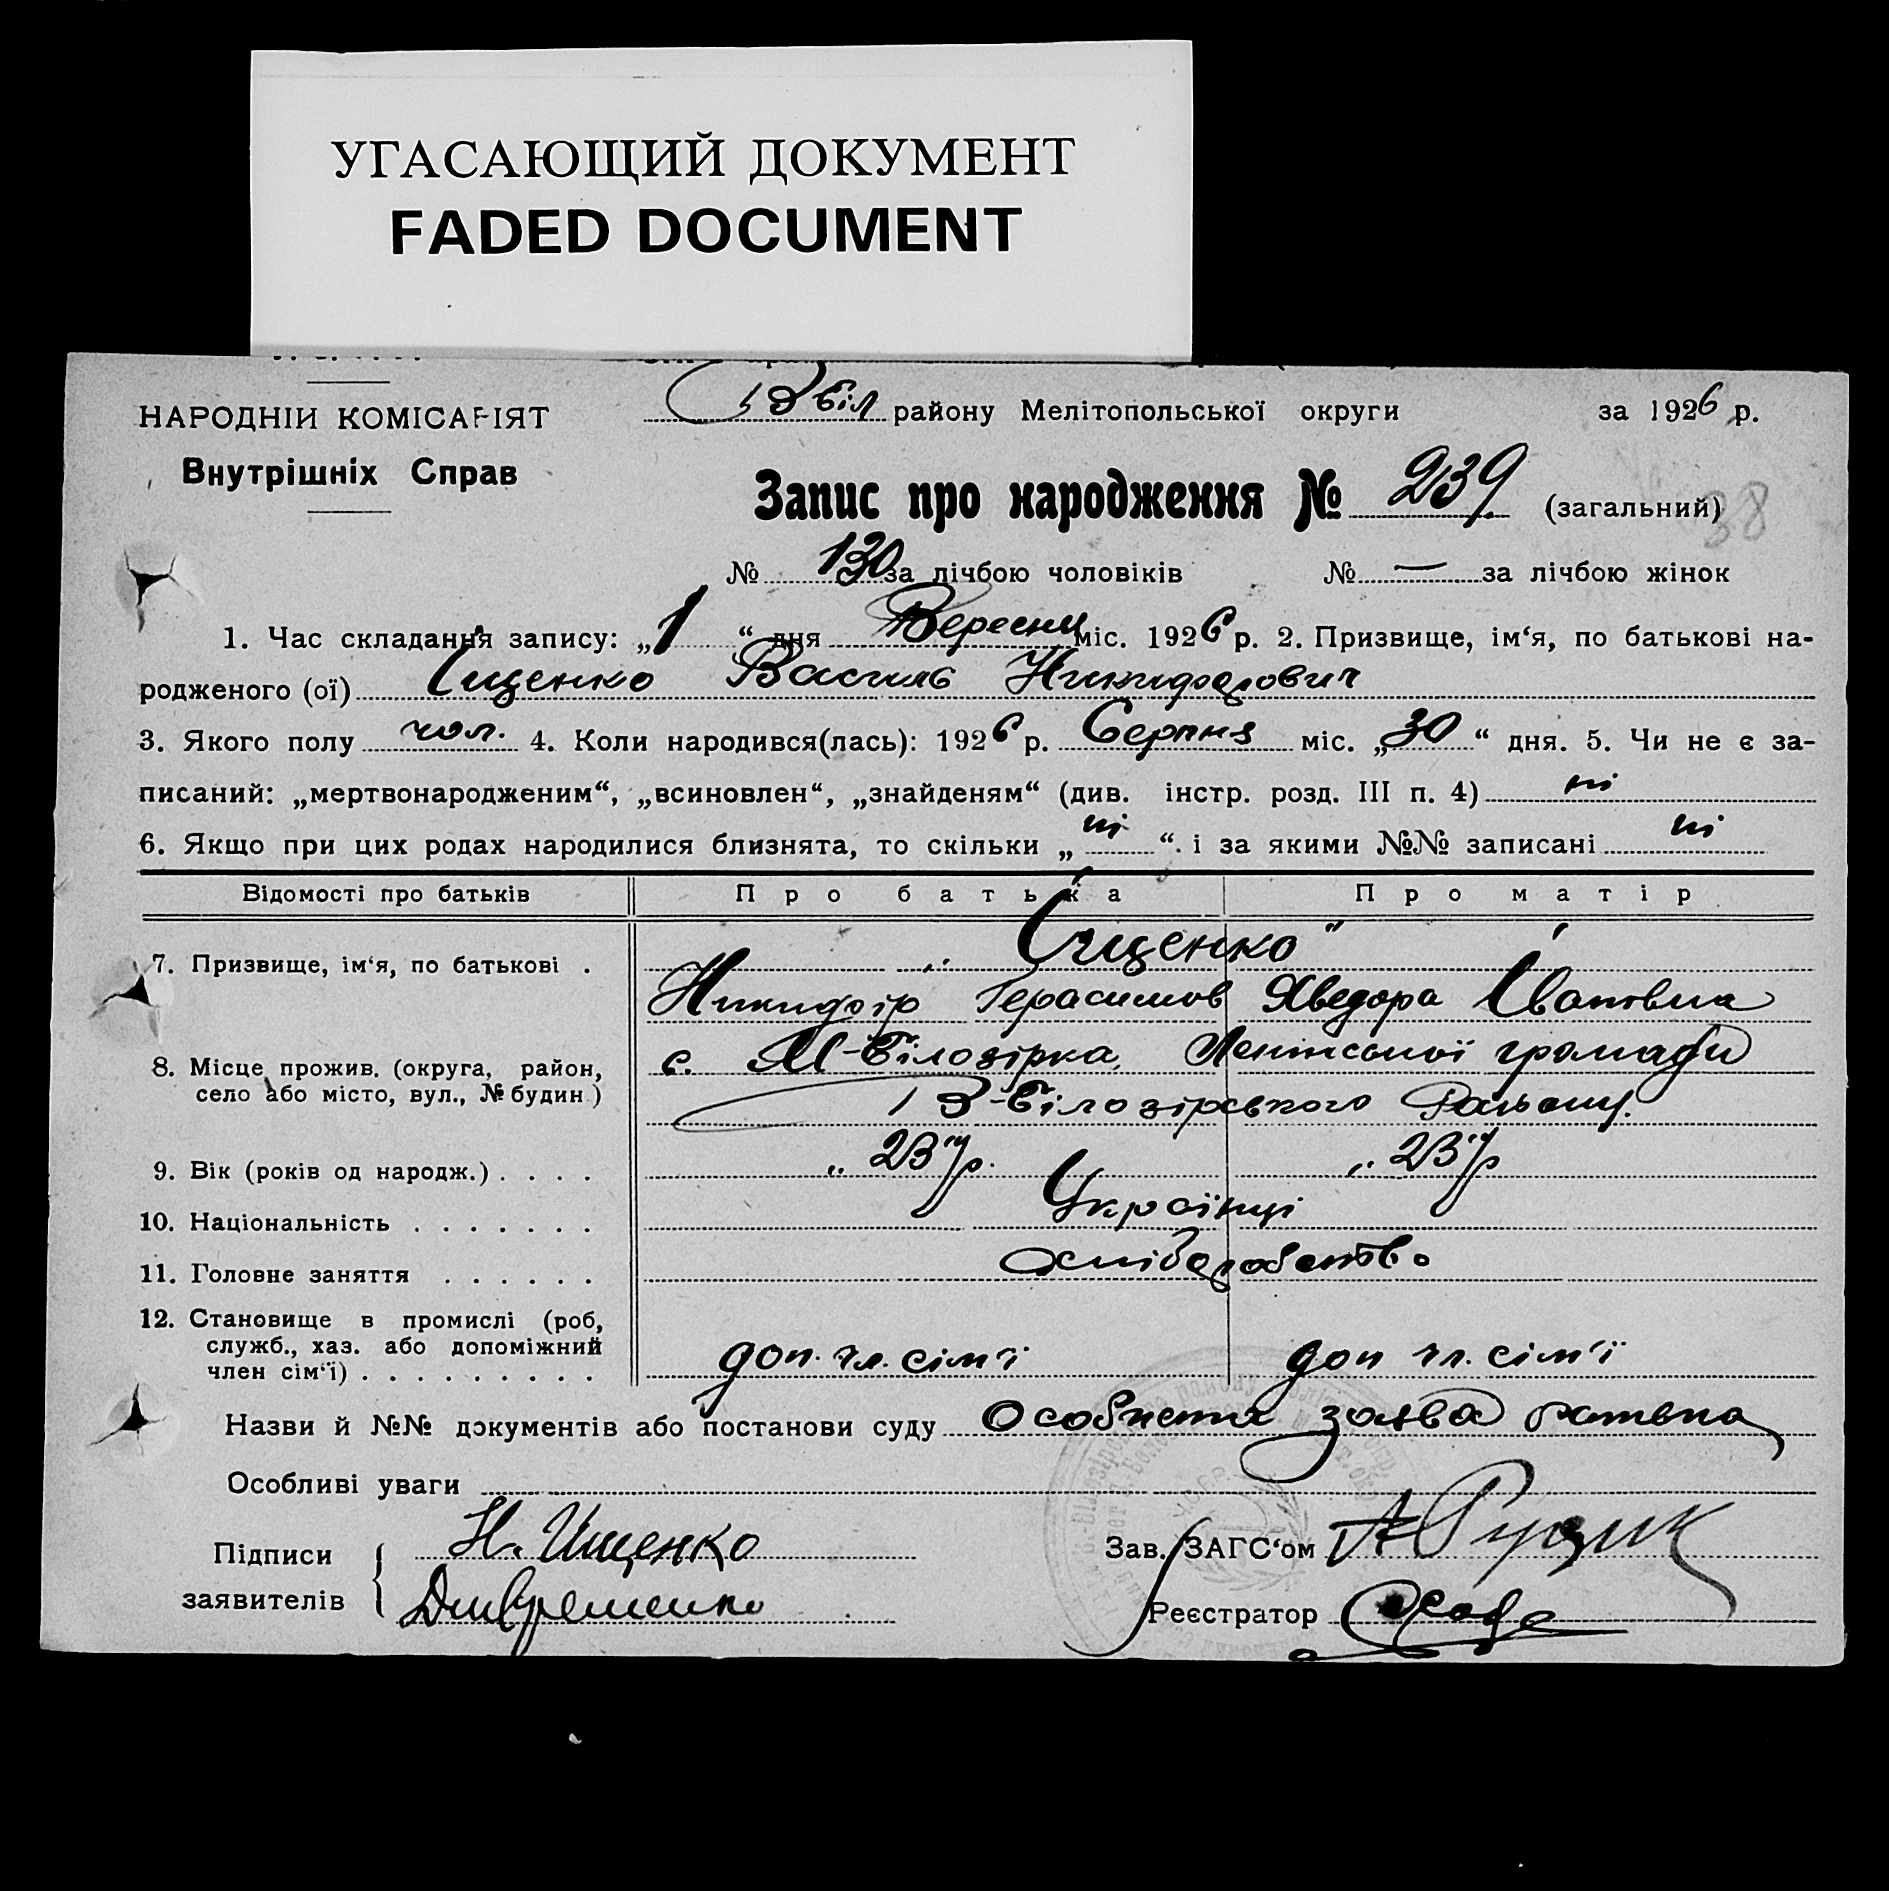 УГАСАЮЩИЙ ДОКУМЕНТ
FADED DOCUMENT
НАРОДНІЙ КОМІСАРІЯТ
Внутрішніх Справ
В Біл району Мелітопольської округи за 1926 р.
Запис про народження № 239 (загальний)
38
№ 130 за лічбою чоловіків № — за лічбою жінок
1. Час складання запису: „1“ дня Вересня міс. 1926 р. 2. Призвище, ім‘я, по батькові на-
родженого (ої) Іщенко Василь Никифорович
3. Якого полу чол. 4. Коли народився(лась): 1926 р. Серпня міс. „30“ дня. 5. Чи не є за-
писаний: „мертвонародженим“, „всиновлен“, „знайденям“ (див. інстр. розд. III п. 4) ні
6. Якщо при цих родах народилися близнята, то скільки „ ні “. і за якими №№ записані ні
Відомості про батьків Про батька Про матір
7. Призвище, ім‘я, по батькові . „ Іщенко “
Никифір Герасимов Хведора Івановна
8. Місце прожив. (округа, район, село або місто, вул., № будин) с. М-Білозірка, громади
В-Білозірського Району.
9. Вік (років од народж.) . . . . „ 23 “ р. „ 23 “ р
10. Національність . . . . . . . Українці
11. Головне заняття . . . . . . Хліборобство
12. Становище в промислі (роб,
служб., хаз. або допоміжний
член сім‘ї) . . . . . . . . . доп. чл. сім‘ї доп чл. сім‘ї
Назви й №№ документів або постанови суду Особиста заява батька
Особливі уваги
Підписи Н. Ищенко Зав. ЗАГС‘ом
заявителів Реєстратор